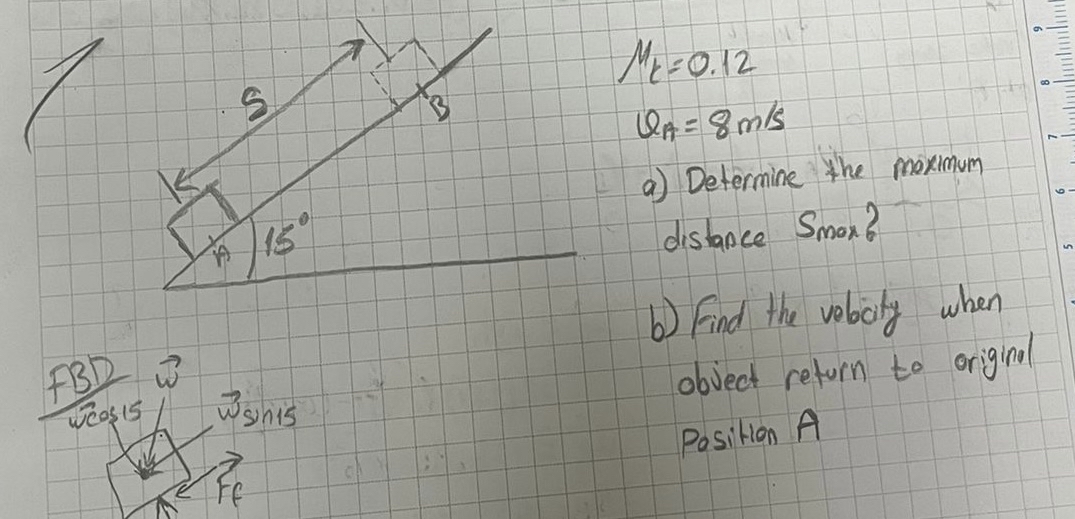 S
B
A
15°
μt = 0.12
υA = 8 m/s
a) Determine the maximum
distance Smax?
b) Find the velocity when
object return to original
Position A
FBD
w
wcos15
wsin15
Ff
9
8
7
6
5